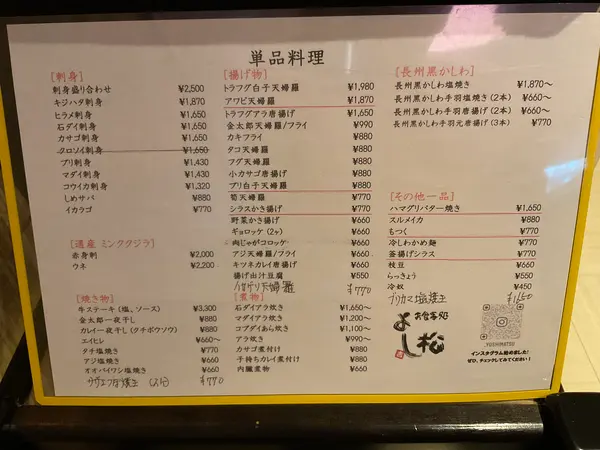 単品料理
[刺身]
刺身盛り合わせ ¥2,500
キジハタ刺身 ¥1,870
ヒラメ刺身 ¥1,650
石ダイ刺身 ¥1,650
カサゴ刺身 ¥1,650
クロソイ刺身 ¥1,650
ブリ刺身 ¥1,430
マダイ刺身 ¥1,430
コウイカ刺身 ¥1,320
しめサバ ¥880
イカゴロ ¥770
[遠産 ミンククジラ]
赤身刺 ¥2,000
ウネ ¥2,200
[焼き物]
牛ステーキ(塩、ソース) ¥3,300
金太郎一夜干し ¥880
カレイ一夜干し(クチボソウゾ) ¥880
エイヒレ ¥660〜
タチ塩焼き ¥770
アジ塩焼き ¥660
オオバイワシ塩焼き ¥660
¥770
[揚げ物]
トラフグ白子天婦羅 ¥1,980
アワビ天婦羅 ¥1,870
トラフグアラ唐揚げ ¥1,650
金太郎天婦羅/フライ ¥990
カキフライ ¥880
タコ天婦羅 ¥880
フグ天婦羅 ¥880
小カサゴ唐揚げ ¥880
ブリ白子天婦羅 ¥880
筍天婦羅 ¥770
シラスかき揚げ ¥770
野菜かき揚げ ¥660
ギョロッケ(2ヶ) ¥660
肉じゃがコロッケ ¥660
アジ天婦羅/フライ ¥660
キツネカレイ唐揚げ ¥660
揚げ出汁豆腐 ¥550
ハマグリ天婦羅 ¥770
[煮物]
石ダイアラ炊き ¥1,320〜
マダイアラ炊き ¥1,200〜
コブダイあら炊き ¥1,100〜
アラ炊き ¥990〜
カサゴ煮付け ¥880
子持ちカレイ煮付け ¥880
内臓煮物 ¥660
[長州黒かしわ]
長州黒かしわ塩焼き ¥1,870〜
長州黒かしわ手羽塩焼き(2本) ¥660〜
長州黒かしわ手羽唐揚げ(2本) ¥660〜
長州黒かしわ手羽元唐揚げ(3本) ¥770
[その他一品]
ハマグリバター焼き ¥1,650
スルメイカ ¥880
もつく ¥770
冷しわかめ麺 ¥770
釜揚げシラス ¥770
枝豆 ¥660
らっきょう ¥550
冷奴 ¥450
ブリカマ塩焼き ¥1,650
お食事処
よし松
YOSHIMATSU
インスタグラム始めました!
ぜひ、チェックしてみてください!